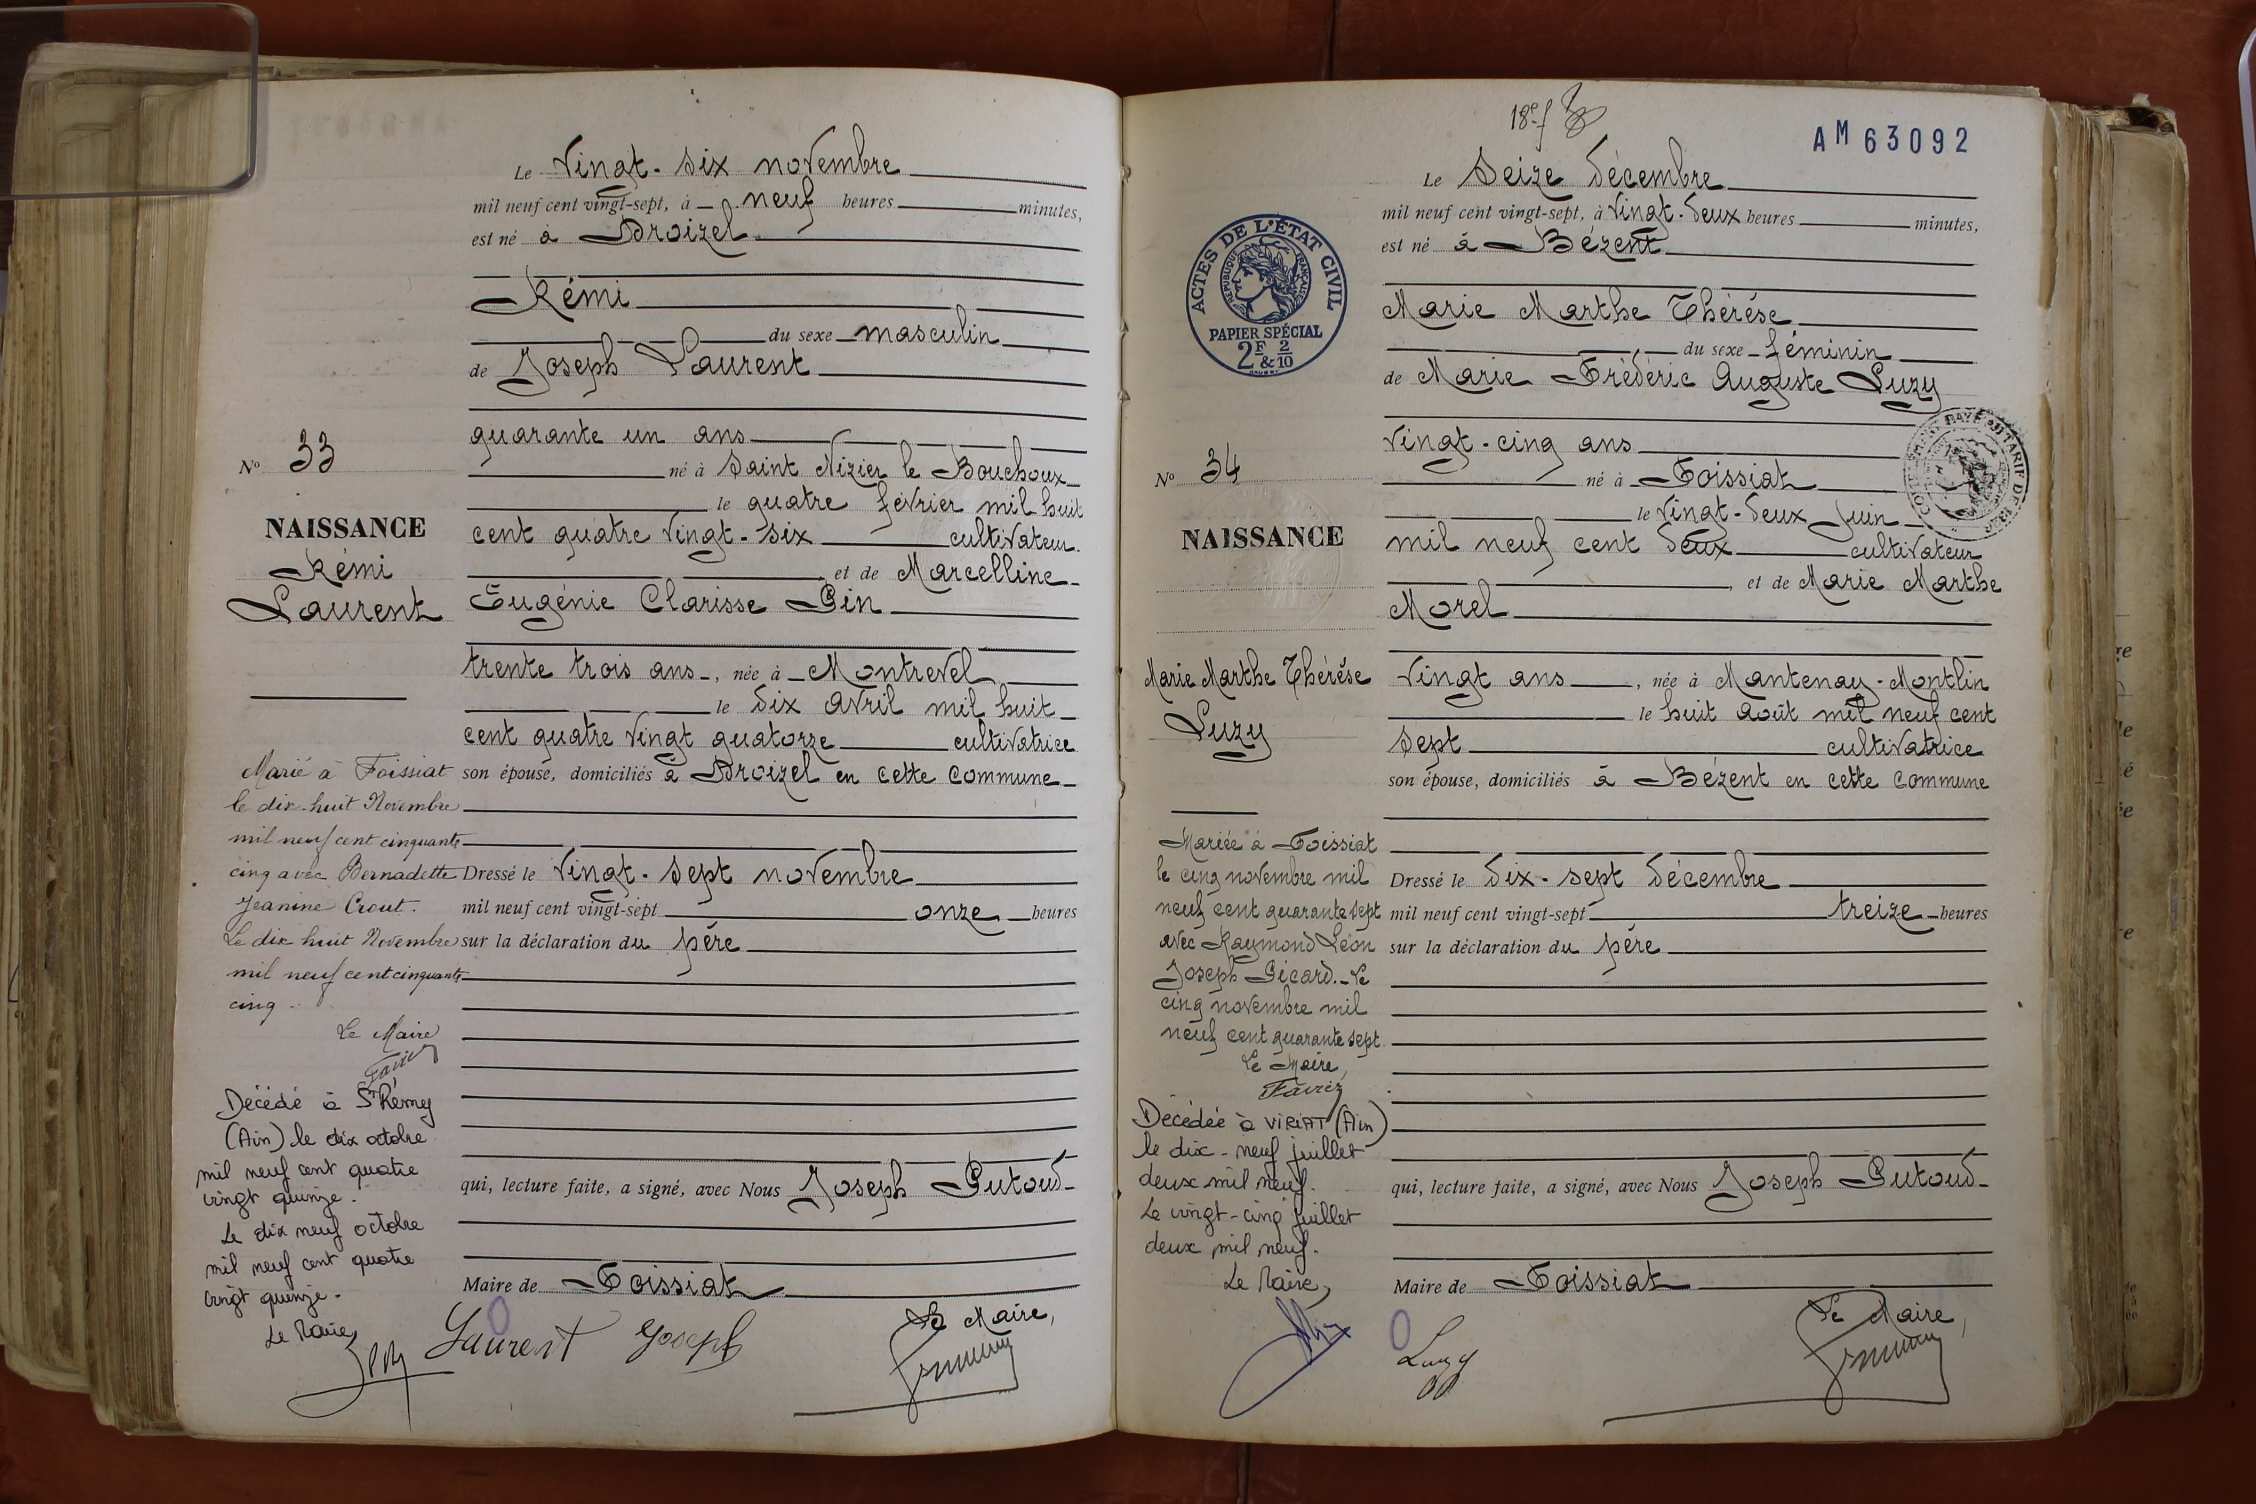 Le vingt-six novembre
mil neuf cent vingt-sept, à neuf heures minutes,
est né à Droizel
Rémi
du sexe masculin
de Joseph Laurent
quarante un ans
né à Saint Nizier le Bouchoux
le quatre février mil huit
cent quatre vingt-six cultivateur
et de Marcelline
Eugénie Clarisse Pin
trente trois ans, née à Montrevel
le dix avril mil huit
cent quatre vingt quatorze cultivatrice
son épouse, domiciliés à Droizel en cette commune
Dressé le vingt-sept novembre
mil neuf cent vingt-sept onze heures
sur la déclaration du père
qui, lecture faite, a signé, avec Nous Joseph Putoud
Maire de Foissiat
Le Maire,
Laurent Joseph
No 33
NAISSANCE
Rémi
Laurent
Marié à Foissiat
le dix-huit Novembre
mil neuf cent cinquante
cinq avec Bernadette
Jeanine Crout.
Le dix huit Novembre
mil neuf cent cinquante
cinq
Le Maire
Décédé à St Rémy
(Ain) le dix octobre
mil neuf cent quatre
vingt quinze.
Le dix neuf octobre
mil neuf cent quatre
vingt quinze.
Le Maire,
18e f
AM 63092
Le Seize décembre
mil neuf cent vingt-sept, à vingt-deux heures minutes,
est né à Bézent
Marie Marthe Thérèse
du sexe féminin
de Marie Frédéric Auguste Luzy
vingt-cinq ans
né à Foissiat
le vingt-deux Juin
mil neuf cent deux cultivateur
et de Marie Marthe
Morel
vingt ans, née à Mantenay-Montlin
le huit août mil neuf cent
sept cultivatrice
son épouse, domiciliés à Bézent en cette commune
Dressé le dix-sept décembre
mil neuf cent vingt-sept treize heures
sur la déclaration du père
qui, lecture faite, a signé, avec Nous Joseph Putoud
Maire de Foissiat
Le Maire,
Luzy
ACTES DE L'ÉTAT CIVIL
RÉPUBLIQUE FRANÇAISE
PAPIER SPÉCIAL
2F & 2/10
No 34
NAISSANCE
Marie Marthe Thérèse
Luzy
Mariée à Foissiat
le cinq novembre mil
neuf cent quarante sept
avec Raymond Léon
Joseph Picard. Le
cinq novembre mil
neuf cent quarante sept
Le Maire,
Favier
Décédée à VIRIAT (Ain)
le dix-neuf juillet
deux mil neuf.
Le vingt-cinq juillet
deux mil neuf.
Le Maire,